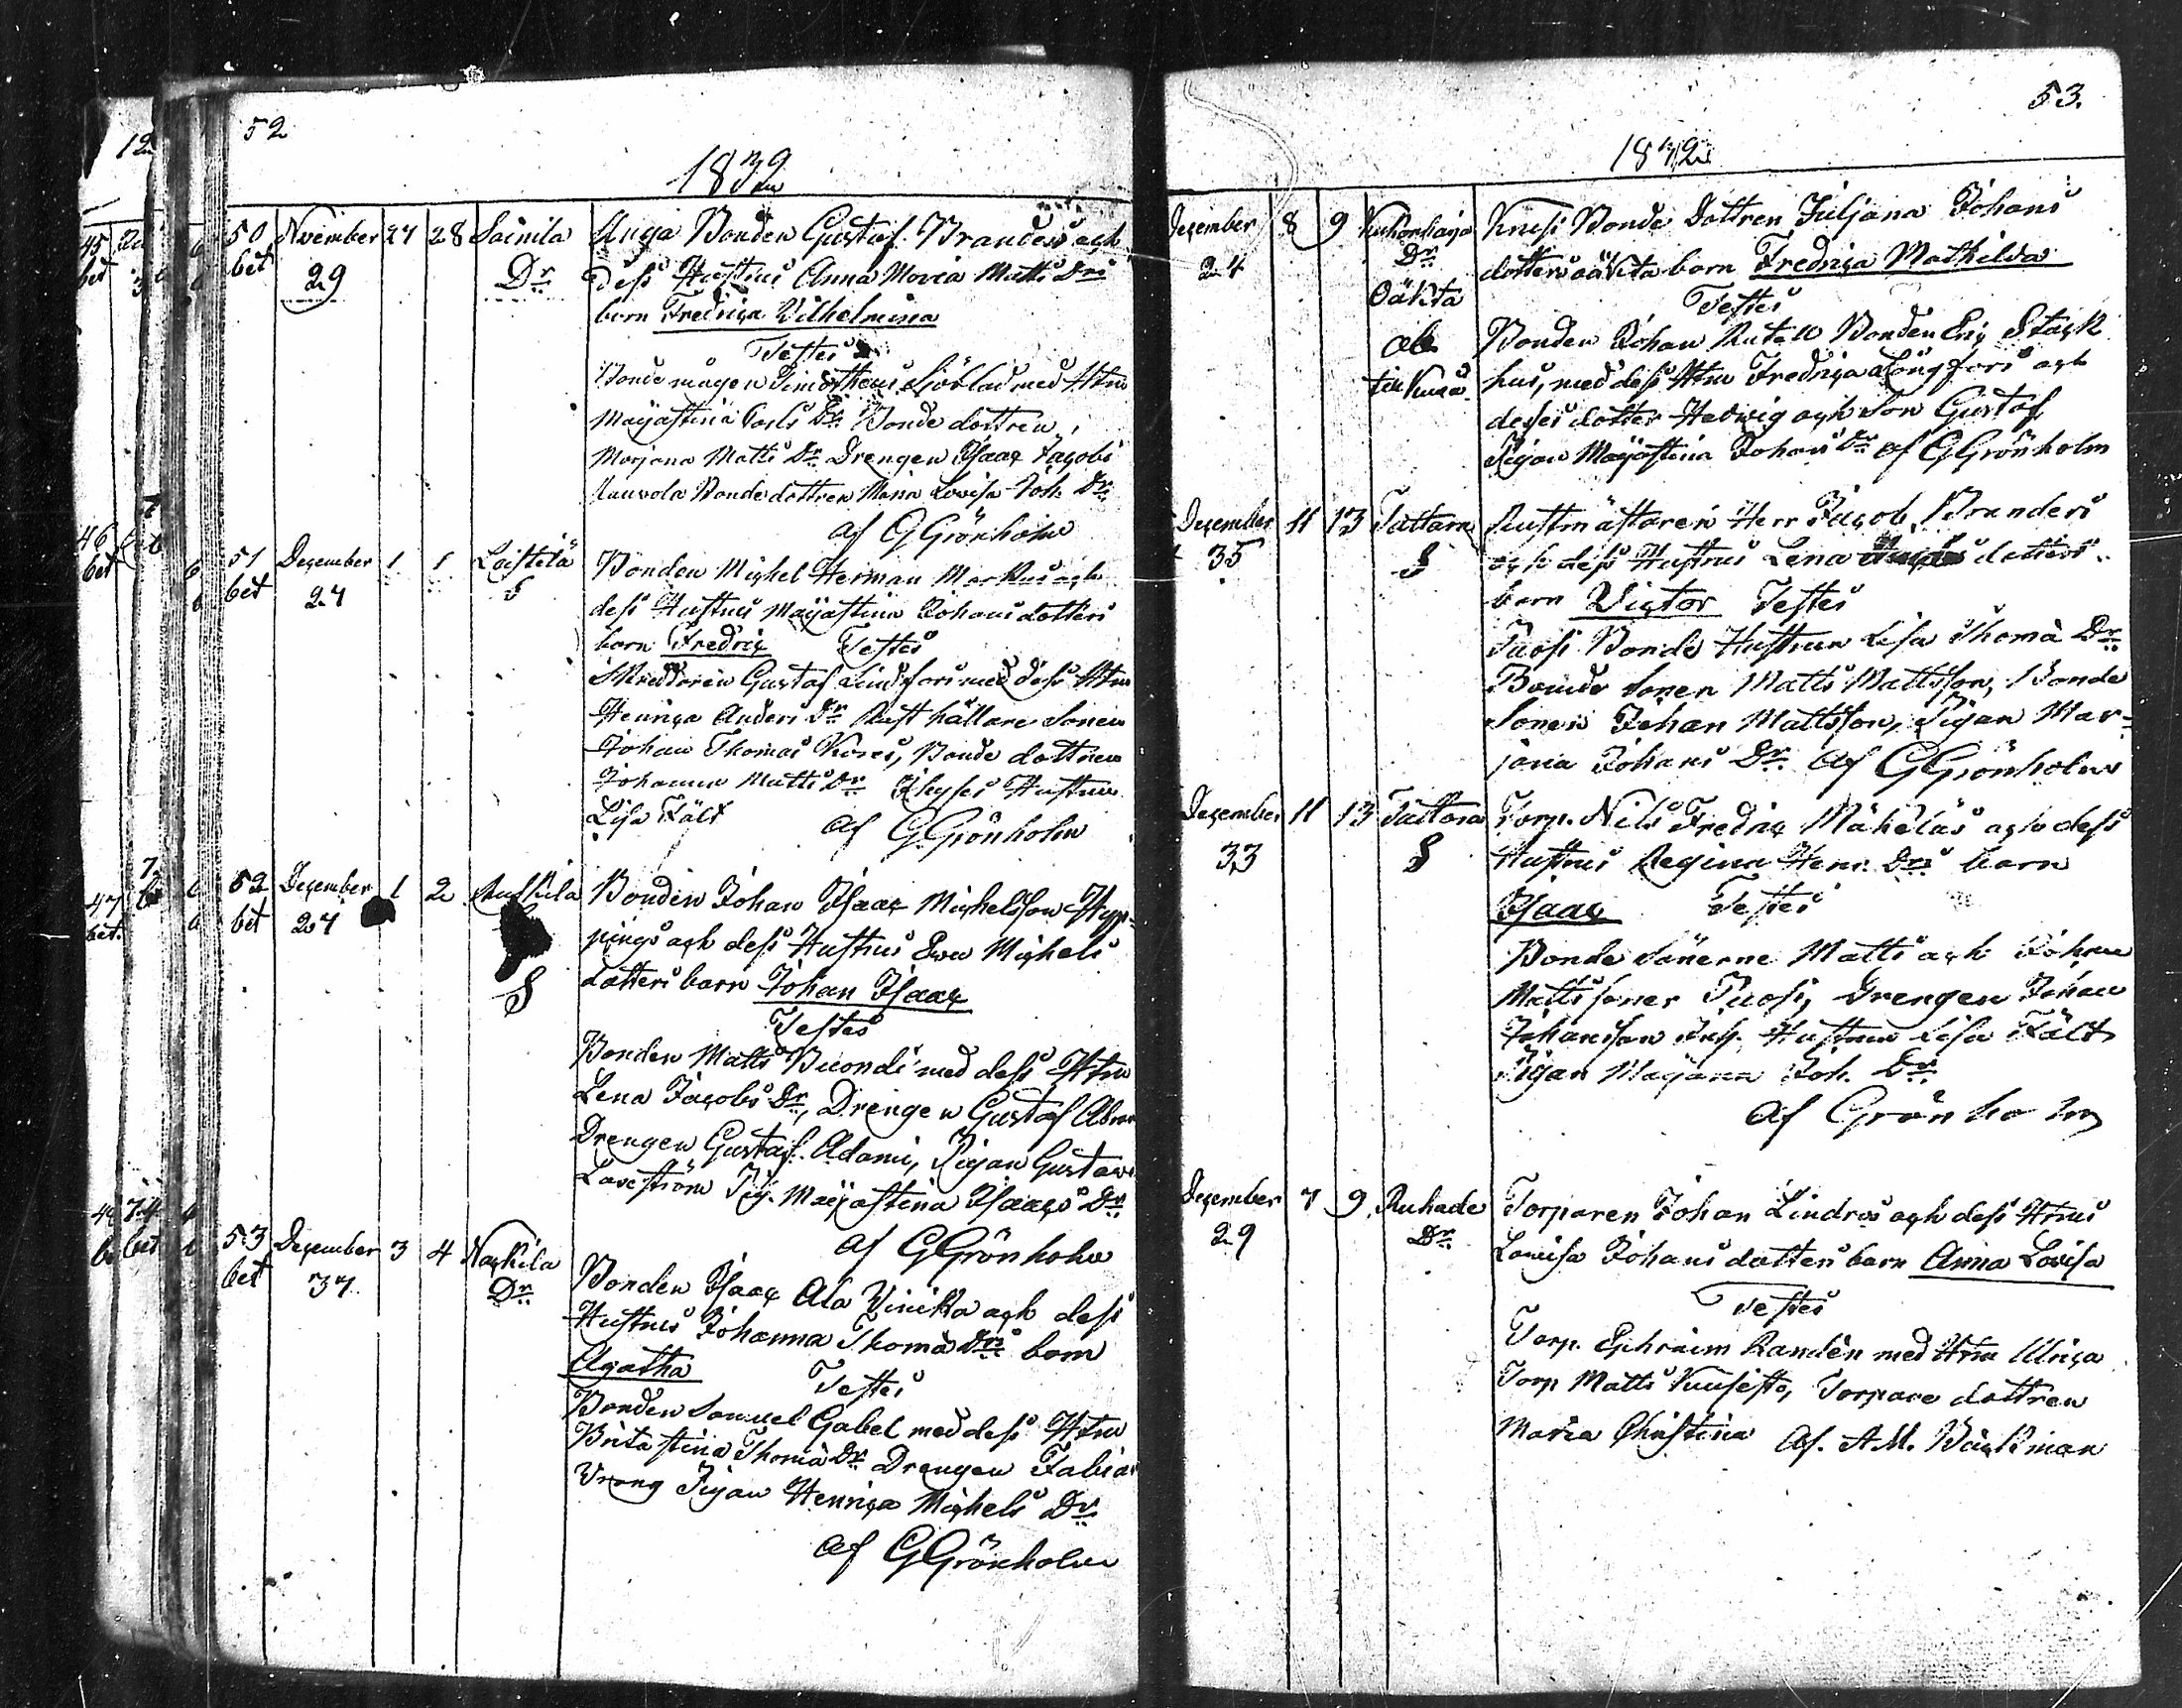 52
1832
50 November 27 28 Sainila Unga Bonden Gustaf Branders och
bet 29 Dr dess Hustrus Anna Moria Matts Drs
barn Fredrica Vilhelmina
Testes
Bonde mågen Timotheus Sjöblad med Htru
Mayastina Carls Dr Bonde dottren
Marjana Matts Dr Drengen Isaac Jacobs
Bonde dottren Maria Lovisa Joh. Dr
af G Grönholm
51 December 1 1 Laistela Bonden Michel Herman Markus och
bet 27 S dess Hustrus Mayastina Johans dotters
barn Fredric Testes
Skreddoren Gustaf Lindfors med dess Htru
Henrica Anders Dr Rust hållare Sonen
Johan Thomas Bonde dottren
Johanna Matts Dr Hustru
Lisa Fält af G. Grönholm
52 December 1 2 Bonden Johan Isaac Michelsson Hyp-
bet 27 pings och dess Hustrus Ewa Michels
S dotters barn Johan Isaac
Testes
Bonden Matts med dess Htru
Lena Jacobs Dr, Drengen Gustaf
Drengen Gustaf Adami, Pigan Gustava
Pig. Mayastina Isaacs Dr
af G Grönholm
53 December 3 4 Nackila Bonden Isaac Ala Vinikka och dess
bet 37 Dr Hustrus Johanna Thomä Drs barn
Agatha Testes
Bonden Samuel Gabel med dess Htru
Brita stina Thomä Dr Drengen Fabian
Vrang Pigan Henrica Michels Dr
af G Grönholm
53.
1832
December 8 9 Bonde Dottren Juljana Johans
24 Dr dotters oäkta barn Fredrica Mathilda
Oäkta Testes
Bonden Johan Bonden Eric Stack
hus, med dess Htru Fredrica Långfors och
deses dotter Hedwig och Son Gustaf
Pigan Mayastina Johans Dr af G Grönholm
December 11 13 Tattara Rustmästaren Herr Jacob Branders
35 S och dess Hustrus Lena dotters
barn Victor Testes
Puosi Bonde Hustrun Lisa Thomä Dr
Bonde Sonen Matts Mattsson, Bonde
Sonen Johan Mattsson, Pigan Mar-
jana Johans Dr af G Grönholm
December 11 13 Tattara Torp. Nils Fredric Mäkeläs och dess
33 S Hustrus Regina Henr. Drs barn
Isaac Testes
Bonde Sönerne Matts och Johan
Matts soner Puosi, Drengen Johan
Johansson Hustrun Lisa Fält
Pigan Mayana Joh. Dr
af Grönholm
December 7 9 Ruhade Torparen Johan Lindros och dess Htrus
29 Dr Lowisa Johans dotters barn Anna Lovisa
Testes
Torp. Ephraim Randen med Htru Ulrica
Torp Matts Torpare dottren
Maria Christina Af. A.M. Bäckman